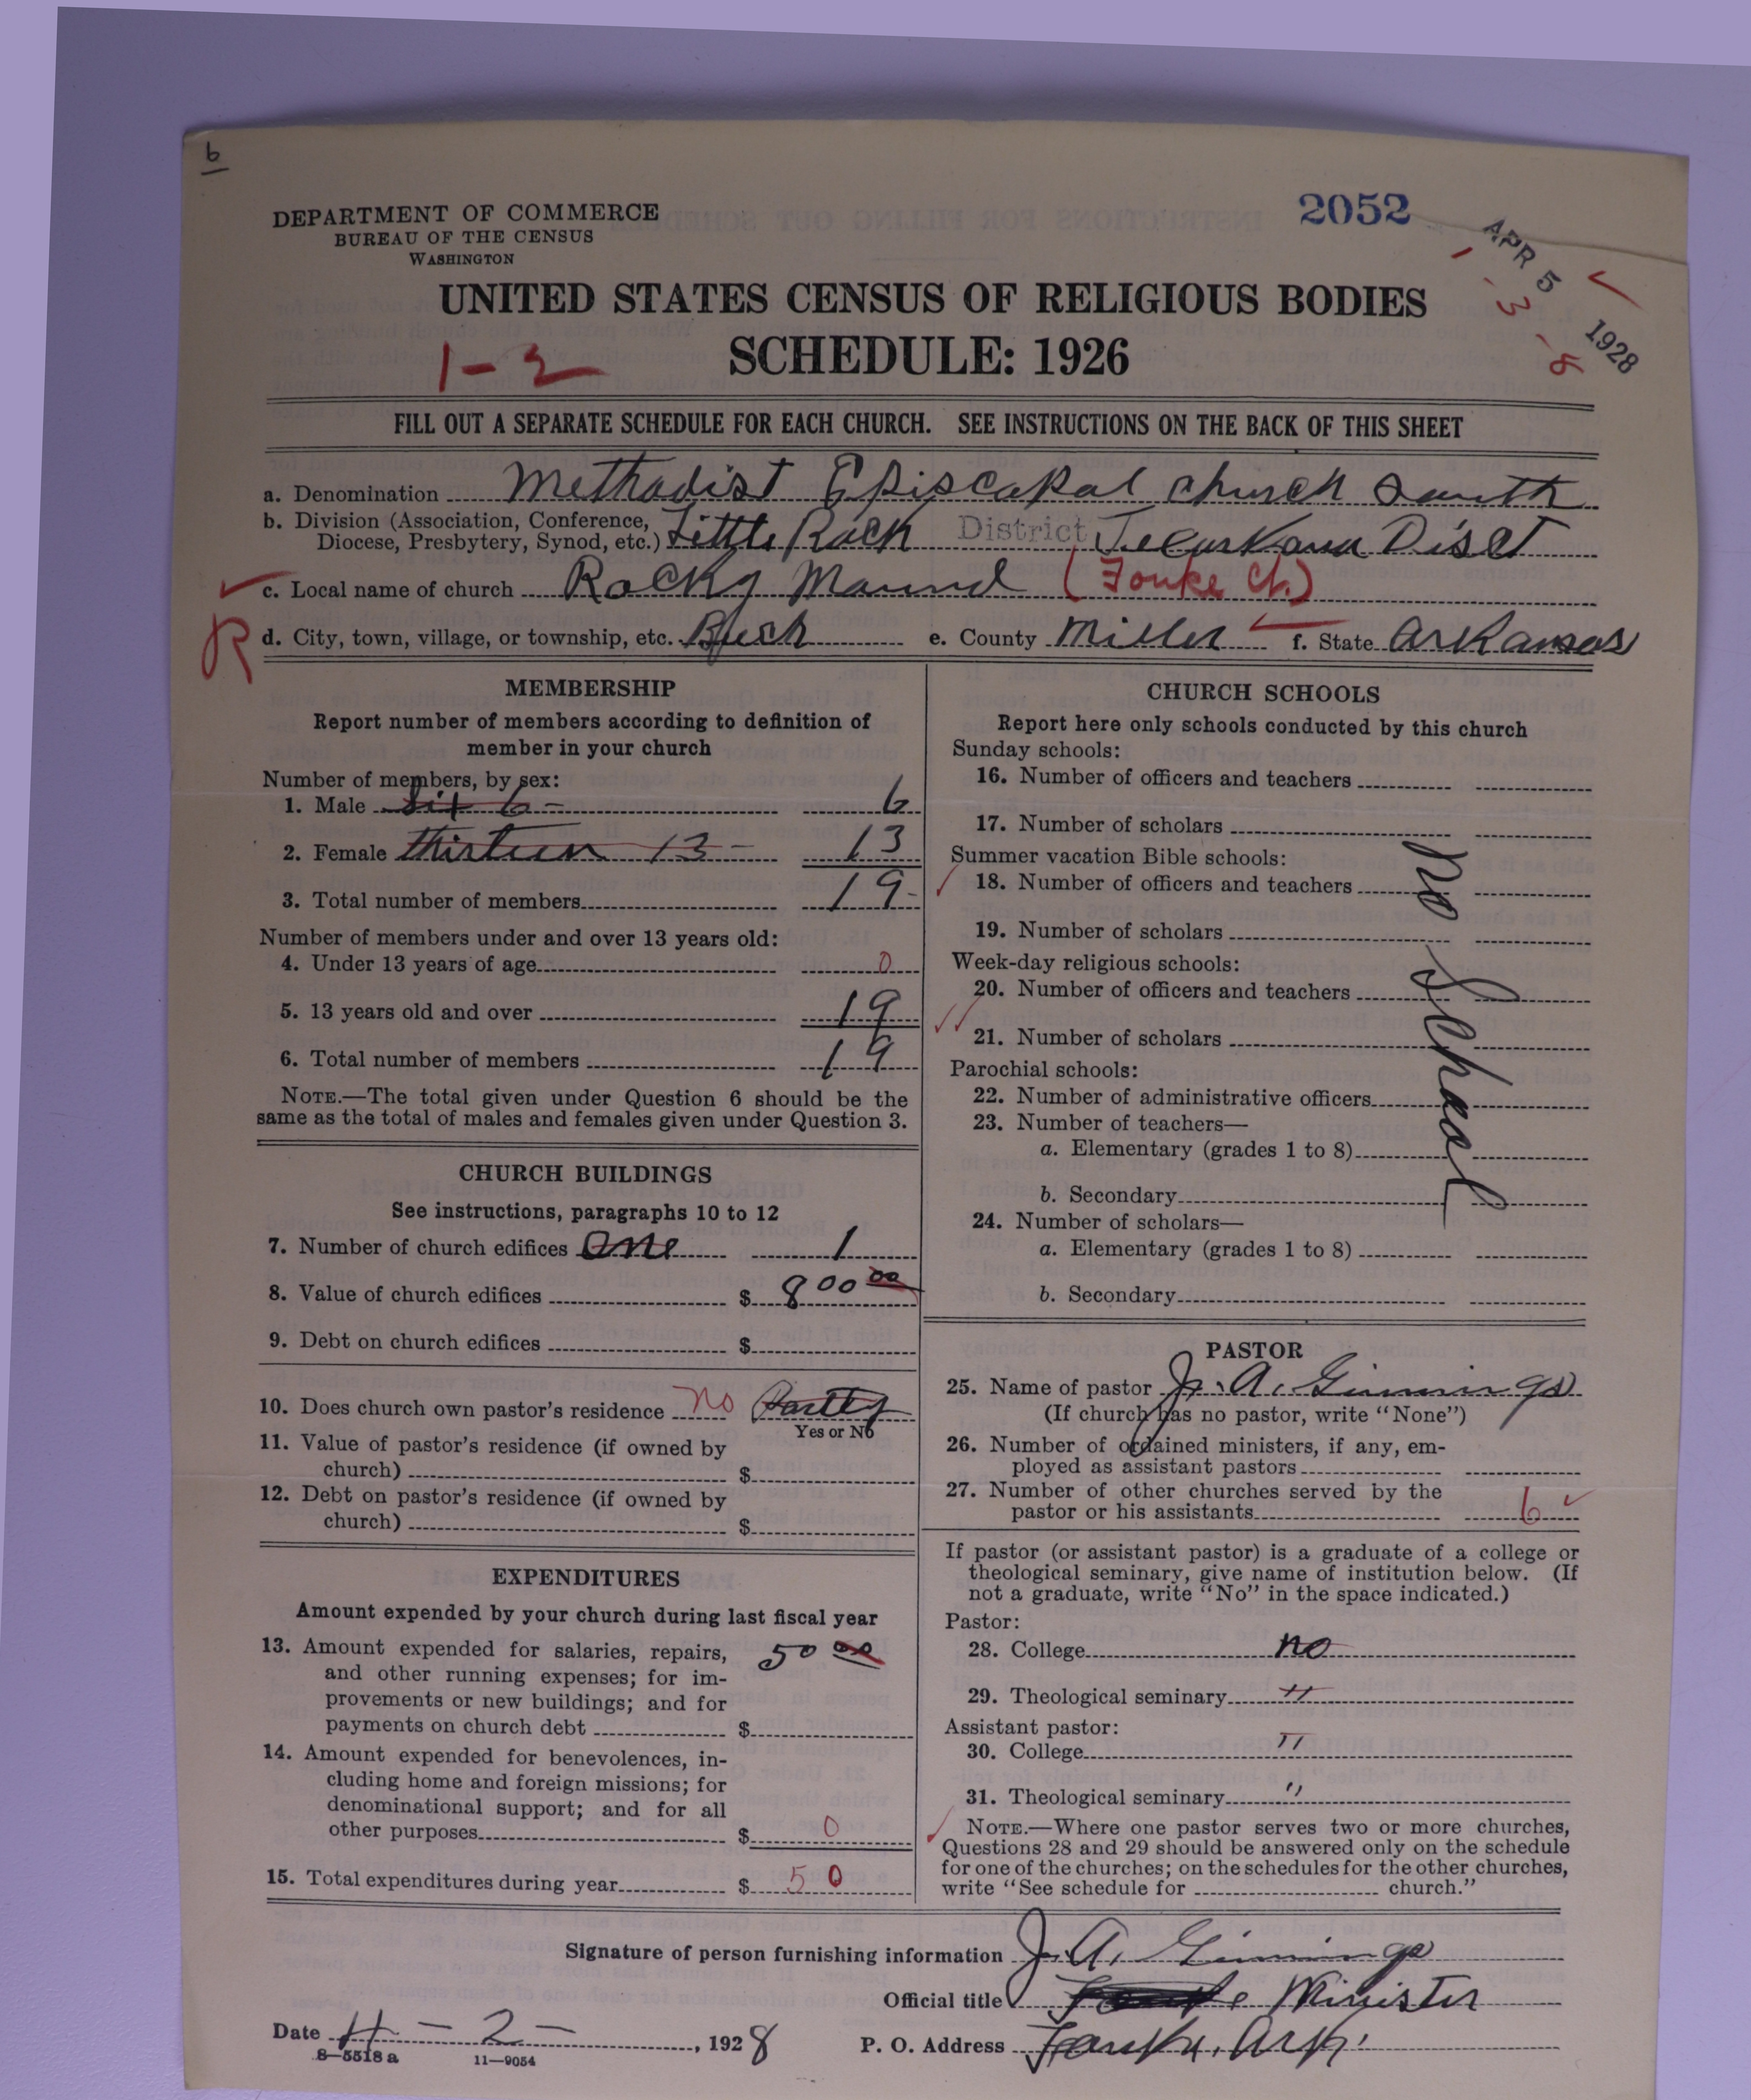 b
DEPARTMENT OF COMMERCE
BUREAU OF THE CENSUS
WASHINGTON
2052
APR 5 1928
1-3-8
UNITED STATES CENSUS OF RELIGIOUS BODIES
SCHEDULE: 1926
1-2
FILL OUT A SEPARATE SCHEDULE FOR EACH CHURCH. SEE INSTRUCTIONS ON THE BACK OF THIS SHEET
a. Denomination Methodist Episcapal church South
b. Division (Association, Conference,
Diocese, Presbytery, Synod, etc.) Little Rock District Texarkana Dist
c. Local name of church Rocky Mound (Fouke Ch.)
R
d. City, town, village, or township, etc. e. County Miller f. State Arkansas
MEMBERSHIP
Report number of members according to definition of
member in your church
Number of members, by sex:
1. Male Six 6 - 6
2. Female thirteen 13 - 13
3. Total number of members 19-
Number of members under and over 13 years old:
4. Under 13 years of age 0
5. 13 years old and over 19
6. Total number of members 19
NOTE.—The total given under Question 6 should be the
same as the total of males and females given under Question 3.
CHURCH BUILDINGS
See instructions, paragraphs 10 to 12
7. Number of church edifices One 1
8. Value of church edifices $ 800 00
9. Debt on church edifices $
10. Does church own pastor's residence no Partly
Yes or No
11. Value of pastor's residence (if owned by
church) $
12. Debt on pastor's residence (if owned by
church) $
EXPENDITURES
Amount expended by your church during last fiscal year
13. Amount expended for salaries, repairs, 50 00
and other running expenses; for im-
provements or new buildings; and for
payments on church debt $
14. Amount expended for benevolences, in-
cluding home and foreign missions; for
denominational support; and for all
other purposes $ 0
15. Total expenditures during year $ 50
CHURCH SCHOOLS
Report here only schools conducted by this church
Sunday schools:
16. Number of officers and teachers
17. Number of scholars
Summer vacation Bible schools:
18. Number of officers and teachers
19. Number of scholars
Week-day religious schools:
20. Number of officers and teachers
21. Number of scholars
Parochial schools:
22. Number of administrative officers
23. Number of teachers—
a. Elementary (grades 1 to 8)
b. Secondary
24. Number of scholars—
a. Elementary (grades 1 to 8)
b. Secondary
No School
PASTOR
25. Name of pastor J. A. Ginnings
(If church has no pastor, write "None")
26. Number of ordained ministers, if any, em-
ployed as assistant pastors
27. Number of other churches served by the
pastor or his assistants 6
If pastor (or assistant pastor) is a graduate of a college or
theological seminary, give name of institution below. (If
not a graduate, write "No" in the space indicated.)
Pastor:
28. College no
29. Theological seminary "
Assistant pastor:
30. College "
31. Theological seminary "
NOTE.—Where one pastor serves two or more churches,
Questions 28 and 29 should be answered only on the schedule
for one of the churches; on the schedules for the other churches,
write "See schedule for church."
Signature of person furnishing information J. A. Ginnings
Official title Minister
Date 4 - 2 - , 1928
P. O. Address Fouke, Ark.
8—5518 a 11—9054